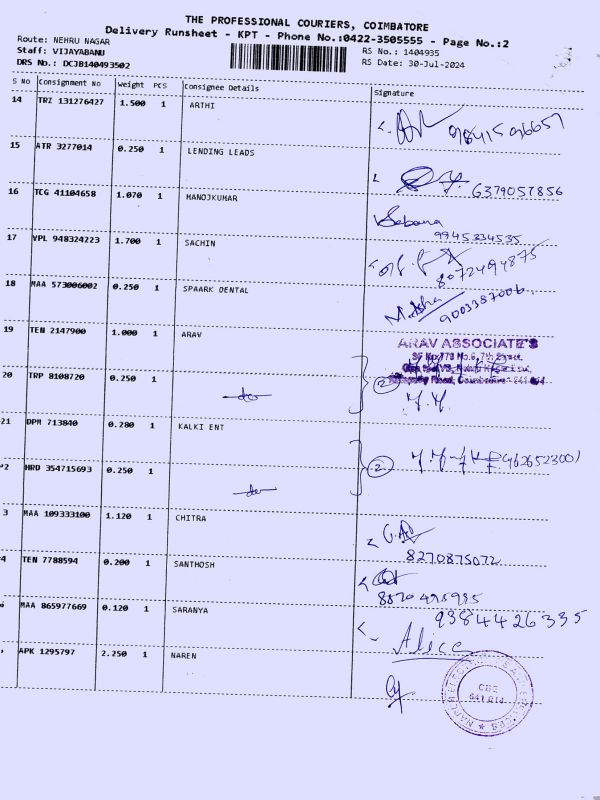 THE PROFESSIONAL COURIERS, COIMBATORE
Delivery Runsheet - KPT - Phone No.:0422-3505555 - Page No.:2
Route: NEHRU NAGAR
Staff: VIJAYABANU
DRS No.: DCJB140493502
RS No.: 1404935
RS Date: 30-Jul-2024
S No Consignment No Weight PCS Consignee Details Signature
14 TRZ 131276427 1.500 1 ARTHI
15 ATR 3277014 0.250 1 LENDING LEADS
6379057856
16 TCG 41104658 1.070 1 MANOJKUMAR
Sabana
9945334535
17 VPL 948324223 1.700 1 SACHIN
8072494875
18 MAA 573006002 0.250 1 SPAARK DENTAL
9003387006
19 TEN 2147900 1.000 1 ARAV
ARAV ASSOCIATE'S
20 TRP 8108720 0.250 1 -do-
2
21 DPM 713840 0.280 1 KALKI ENT
2 9626523001
2 HRD 354715693 0.250 1 -do-
3 MAA 109333100 1.120 1 CHITRA
8270875072
4 TEN 7788594 0.200 1 SANTHOSH
MAA 865977669 0.120 1 SARANYA
9384426335
Alice
APK 1295797 2.250 1 NAREN
CBE
641 014